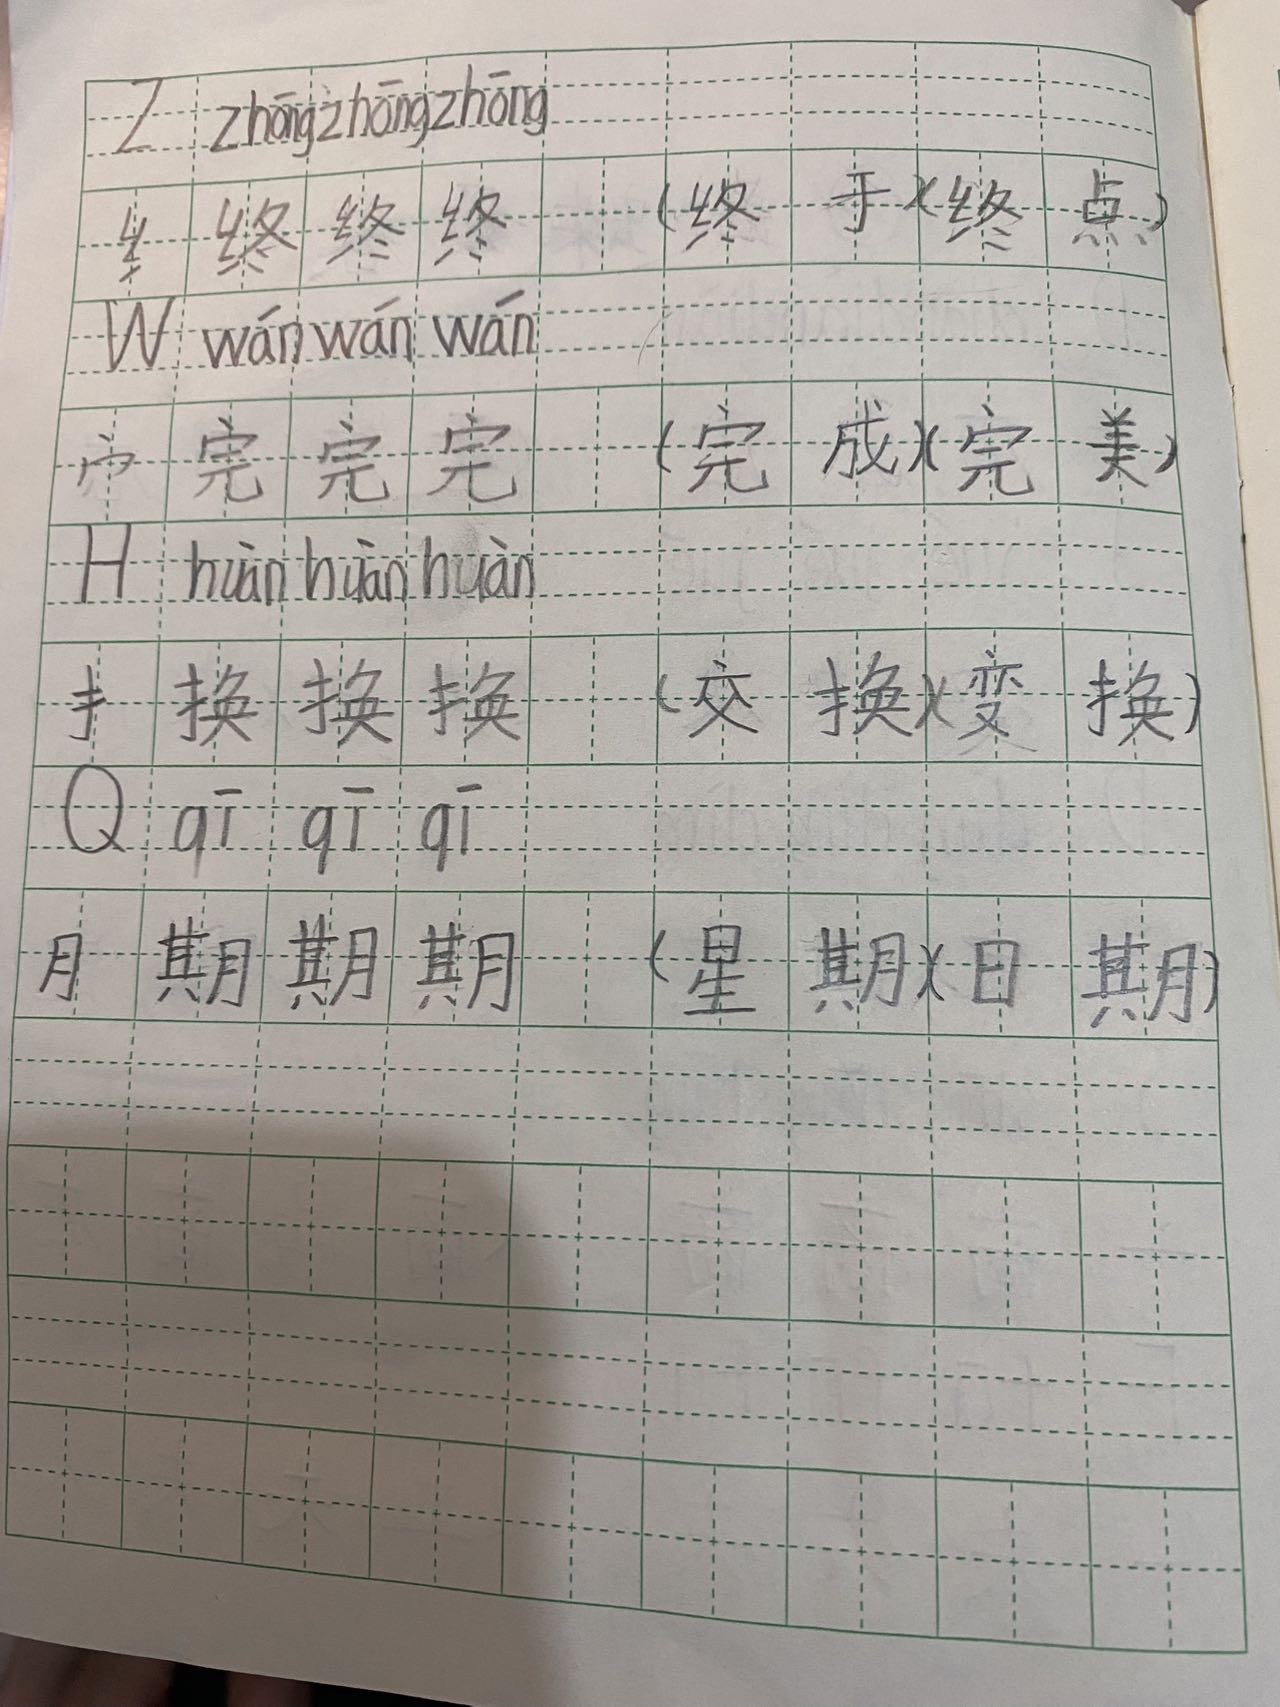 Z zhōng zhōng zhōng
纟 终 终 终 (终 于)(终 点)
W wán wán wán
宀 完 完 完 (完 成)(完 美)
H huàn huàn huàn
扌 换 换 换 (交 换)(变 换)
Q qī qī qī
月 期 期 期 (星 期)(日 期)